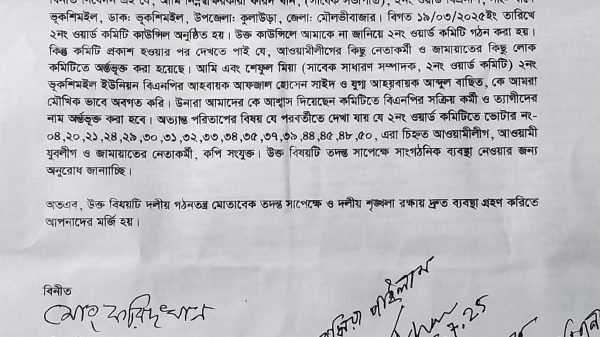 বিনীত নিবেদন এই যে, আমি নিম্নস্বাক্ষরকারী ফরিদ খান, (সাবেক সভাপতি), ২নং ওয়ার্ড
ভূকশিমইল, ডাক: ভূকশিমইল, উপজেলা: কুলাউড়া, জেলা: মৌলভীবাজার। বিগত ১৯/০৩/২০২৫ইং তারিখে
২নং ওয়ার্ড কমিটি কাউন্সিল অনুষ্ঠিত হয়। উক্ত কাউন্সিলে আমাকে না জানিয়ে ২নং ওয়ার্ড কমিটি গঠন করা হয়।
কিন্তু কমিটি প্রকাশ হওয়ার পর দেখতে পাই যে, আওয়ামীলীগের কিছু নেতাকর্মী ও জামায়াতের কিছু লোক
কমিটিতে অর্ন্তভূক্ত করা হয়েছে। আমি এবং শেফুল মিয়া (সাবেক সাধারণ সম্পাদক, ২নং ওয়ার্ড কমিটি) ২নং
ভূকশিমইল ইউনিয়ন বিএনপির আহবায়ক আফজাল হোসেন সাইদ ও যুগ্ম আহবায়ক আব্দুল বাছিত, কে আমরা
মৌখিক ভাবে অবগত করি। উনারা আমাদের কে আশ্বাস দিয়েছেন কমিটিতে বিএনপির সক্রিয় কর্মী ও ত্যাগীদের
নাম অর্ন্তভূক্ত করা হবে। অত্যান্ত পরিতাপের বিষয় যে পরবর্তীতে দেখা যায় যে ২নং ওয়ার্ড কমিটিতে ভোটার নং-
০৪,২০,২১,২৪,২৯,৩০,৩১,৩২,৩৩,৩৪,৩৫,৩৭,৩৯,৪৪,৪৫,৪৮,৫০, এরা চিহ্নত আওয়ামীলীগ, আওয়ামী
যুবলীগ ও জামায়াতের নেতাকর্মী, কপি সংযুক্ত। উক্ত বিষয়টি তদন্ত সাপেক্ষে সাংগঠনিক ব্যবস্থা নেওয়ার জন্য
অনুরোধ জানাচ্ছি।
অতএব, উক্ত বিষয়টি দলীয় গঠনতন্ত্র মোতাবেক তদন্ত সাপেক্ষে ও দলীয় শৃঙ্খলা রক্ষায় দ্রুত ব্যবস্থা গ্রহণ করিতে
আপনাদের মর্জি হয়।
বিনীত
মোঃ ফরিদ খান